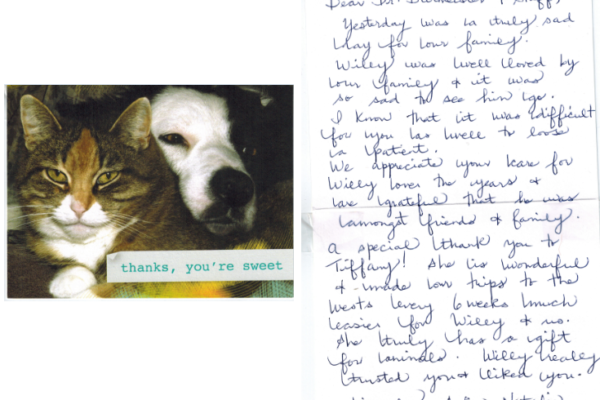 thanks, you're sweet
Dear Dr.
Yesterday was a truly sad
day for our family.
Willy was well loved by
our family & it was
so sad to see him go.
I know that it was difficult
for you as well to lose
a patient.
We appreciate your care for
Willy over the years &
are grateful that he was
amongst friends & family.
A special thank you to
Tiffany! She is wonderful
& made our trips to the
vets every 6 weeks much
easier for Willy & us.
She truly has a gift
for animals. Willy really
trusted you & liked you.